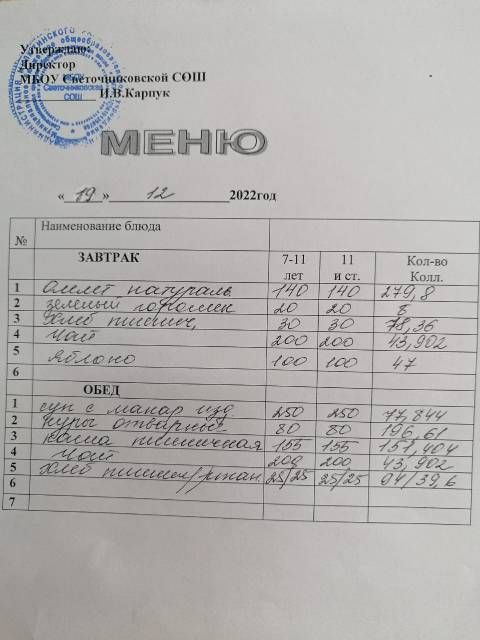 Утверждаю:
Директор
МБОУ Светочниковской СОШ
И.В.Карпук
МБОУ
Светочниковская
СОШ
МЕНЮ
« 19 » 12 2022год
№ Наименование блюда
ЗАВТРАК 7-11 лет 11 и ст. Кол-во Колл.
1 Омлет натураль. 140 140 279,8
2 зеленый горошек 20 20 8
3 Хлеб пшенич, 30 30 78,36
4 Чай 200 200 43,902
5 Яблоко 100 100 47
6
ОБЕД
1 суп с макар изд 250 250 77,844
2 куры отварные 80 80 196,61
3 каша пшеничная 155 155 151,404
4 Чай 200 200 43,902
5 Хлеб пшенич/ржан. 25/25 25/25 94/39,6
6
7